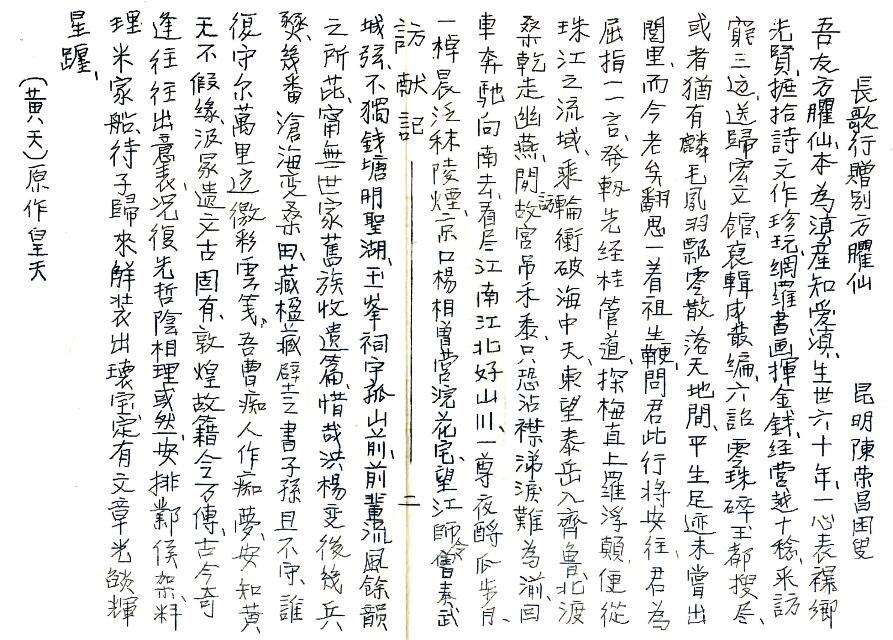 長歌行贈別方臞仙　昆明陳荣昌困叟
吾友方臞仙、本為滇産知愛滇、生世六十年、一心表襮鄉
先賢、摭拾詩文作珍玩、網羅書画揮金錢、经营越十稔、采訪
窮三迤、送歸宏文館、裒輯成叢编、六詔零珠碎玉都搜尽、
或者猶有麟毛鳳羽飄零散落天地間、平生足迹未嘗出
閭里、而今老矣翻思一着祖生鞭、問君此行將安往、君為
屈指一一言、発軔先经桂管道、探梅直上羅浮顛、便從
珠江之流域、乘輪衝破海中天、東望泰岳入齊魯、北渡
桑乾走幽燕、閒謁故宫吊禾黍、只恐沾襟涕淚難為湔、回
車奔馳向南去、看尽江南江北好山川、一尊夜酹瓜步月、
一棹晨泛秣陵煙、京口楊相曾营浣花宅、望江師令曾奏武
訪献記　二
城弦、不獨錢塘明聖湖、玉峯祠宇孤山前、前輩流風餘韻
之所芘、甯無世家舊族收遺篇、惜哉洪楊变後幾兵
燹、幾番滄海变桑田、藏楹藏壁之書子孫且不守、誰
復守尔萬里边徼彩雲箋、吾曹痴人作痴夢、安知黄
天不假缘、汲冢遺文古固有、敦煌故籍今乃傳、古今奇
逢往往出意表、况復先哲陰相理或然、安排鄴侯架、料
理米家船、待子歸來解装出瓌宝、定有文章光燄輝
星躔、
（黄天）原作皇天